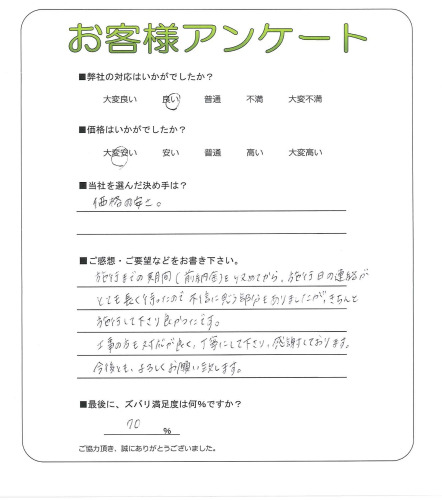 お客様アンケート
■弊社の対応はいかがでしたか？
大変良い 良い 普通 不満 大変不満
■価格はいかがでしたか？
大変安い 安い 普通 高い 大変高い
■当社を選んだ決め手は？
価格の安さ。
■ご感想・ご要望などをお書き下さい。
施行までの期間(前納金)を収めてから、施行日の連絡が
とても長く待ったので不信に思う部分もありましたが、きちんと
施行して下さり良かったです。
工事の方も対応が良く、丁寧にして下さり、感謝しております。
今後とも、よろしくお願い致します。
■最後に、ズバリ満足度は何%ですか？
70 %
ご協力頂き、誠にありがとうございました。